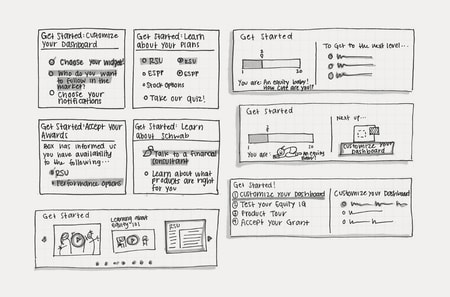 Get Started: Customize
Your Dashboard
Choose your widget!
Who do you want
to follow in the
market?
Choose your
notifications
Get Started: Learn
about your Plans
RSU
RSU
ESPP
ESPP
Stock Options
Take our quiz!
Get Started: Accept Your
Awards
Box has informed us
you have availability
to the following...
RSU
Performance options
Get Started: Learn
about Schwab
Talk to a financial
consultant
Learn about what
products are right
for you
Get Started
Learning about
Equity 101
RSU
Get Started
1
20
You are: An equity baby!
How cute are you!!
To Get to the next level...
Get Started
1
20
You are:
An equity
baby!
Next up...
Customize your
Dashboard
Get Started!
1 Customize your Dashboard
2 Test your Equity IQ
3 Product Tour
4 Accept your Grant
Customize your Dashboard